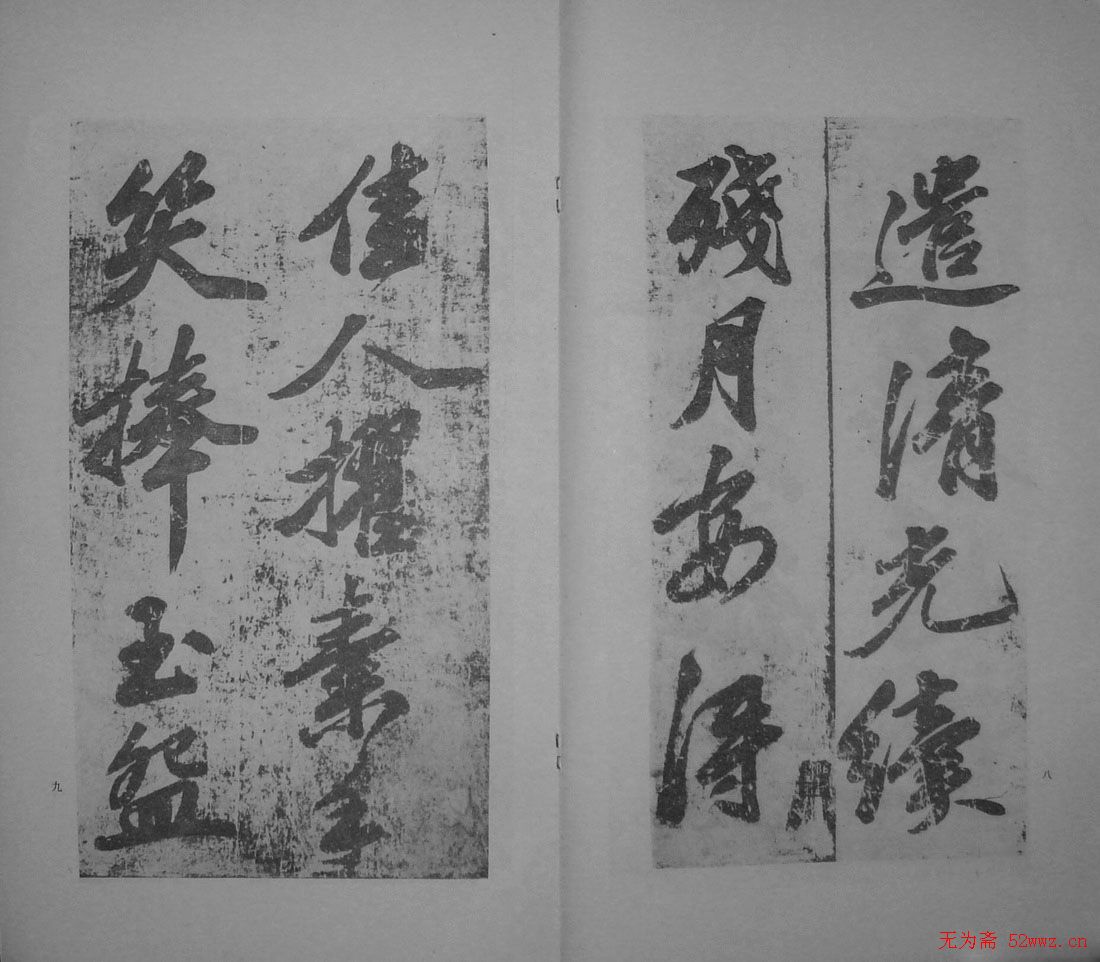 遣清光續
殘月安得
八
佳人擢素手
笑捧玉盌
九
无为斋 52wwz.cn